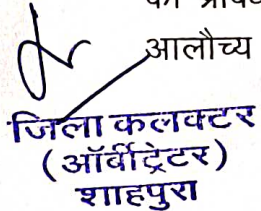 आलौच्य
जिला कलक्टर
(ऑर्वीट्रेटर)
शाहपुरा